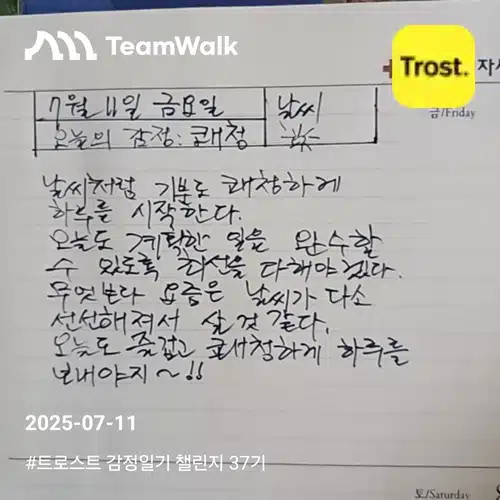 TeamWalk
Trost.
자세
금/Friday
7월 11일 금요일
날씨
오늘의 감정: 쾌청
날씨처럼 기분도 쾌청하게
하루를 시작한다.
오늘도 계획한 일을 완수할
수 있도록 최선을 다해야겠다.
무엇보다 요즘은 날씨가 다소
선선해져서 살 것 같다.
오늘도 즐겁고 쾌청하게 하루를
보내야지~!!
2025-07-11
#트로스트 감정일기 챌린지 37기
토/Saturday